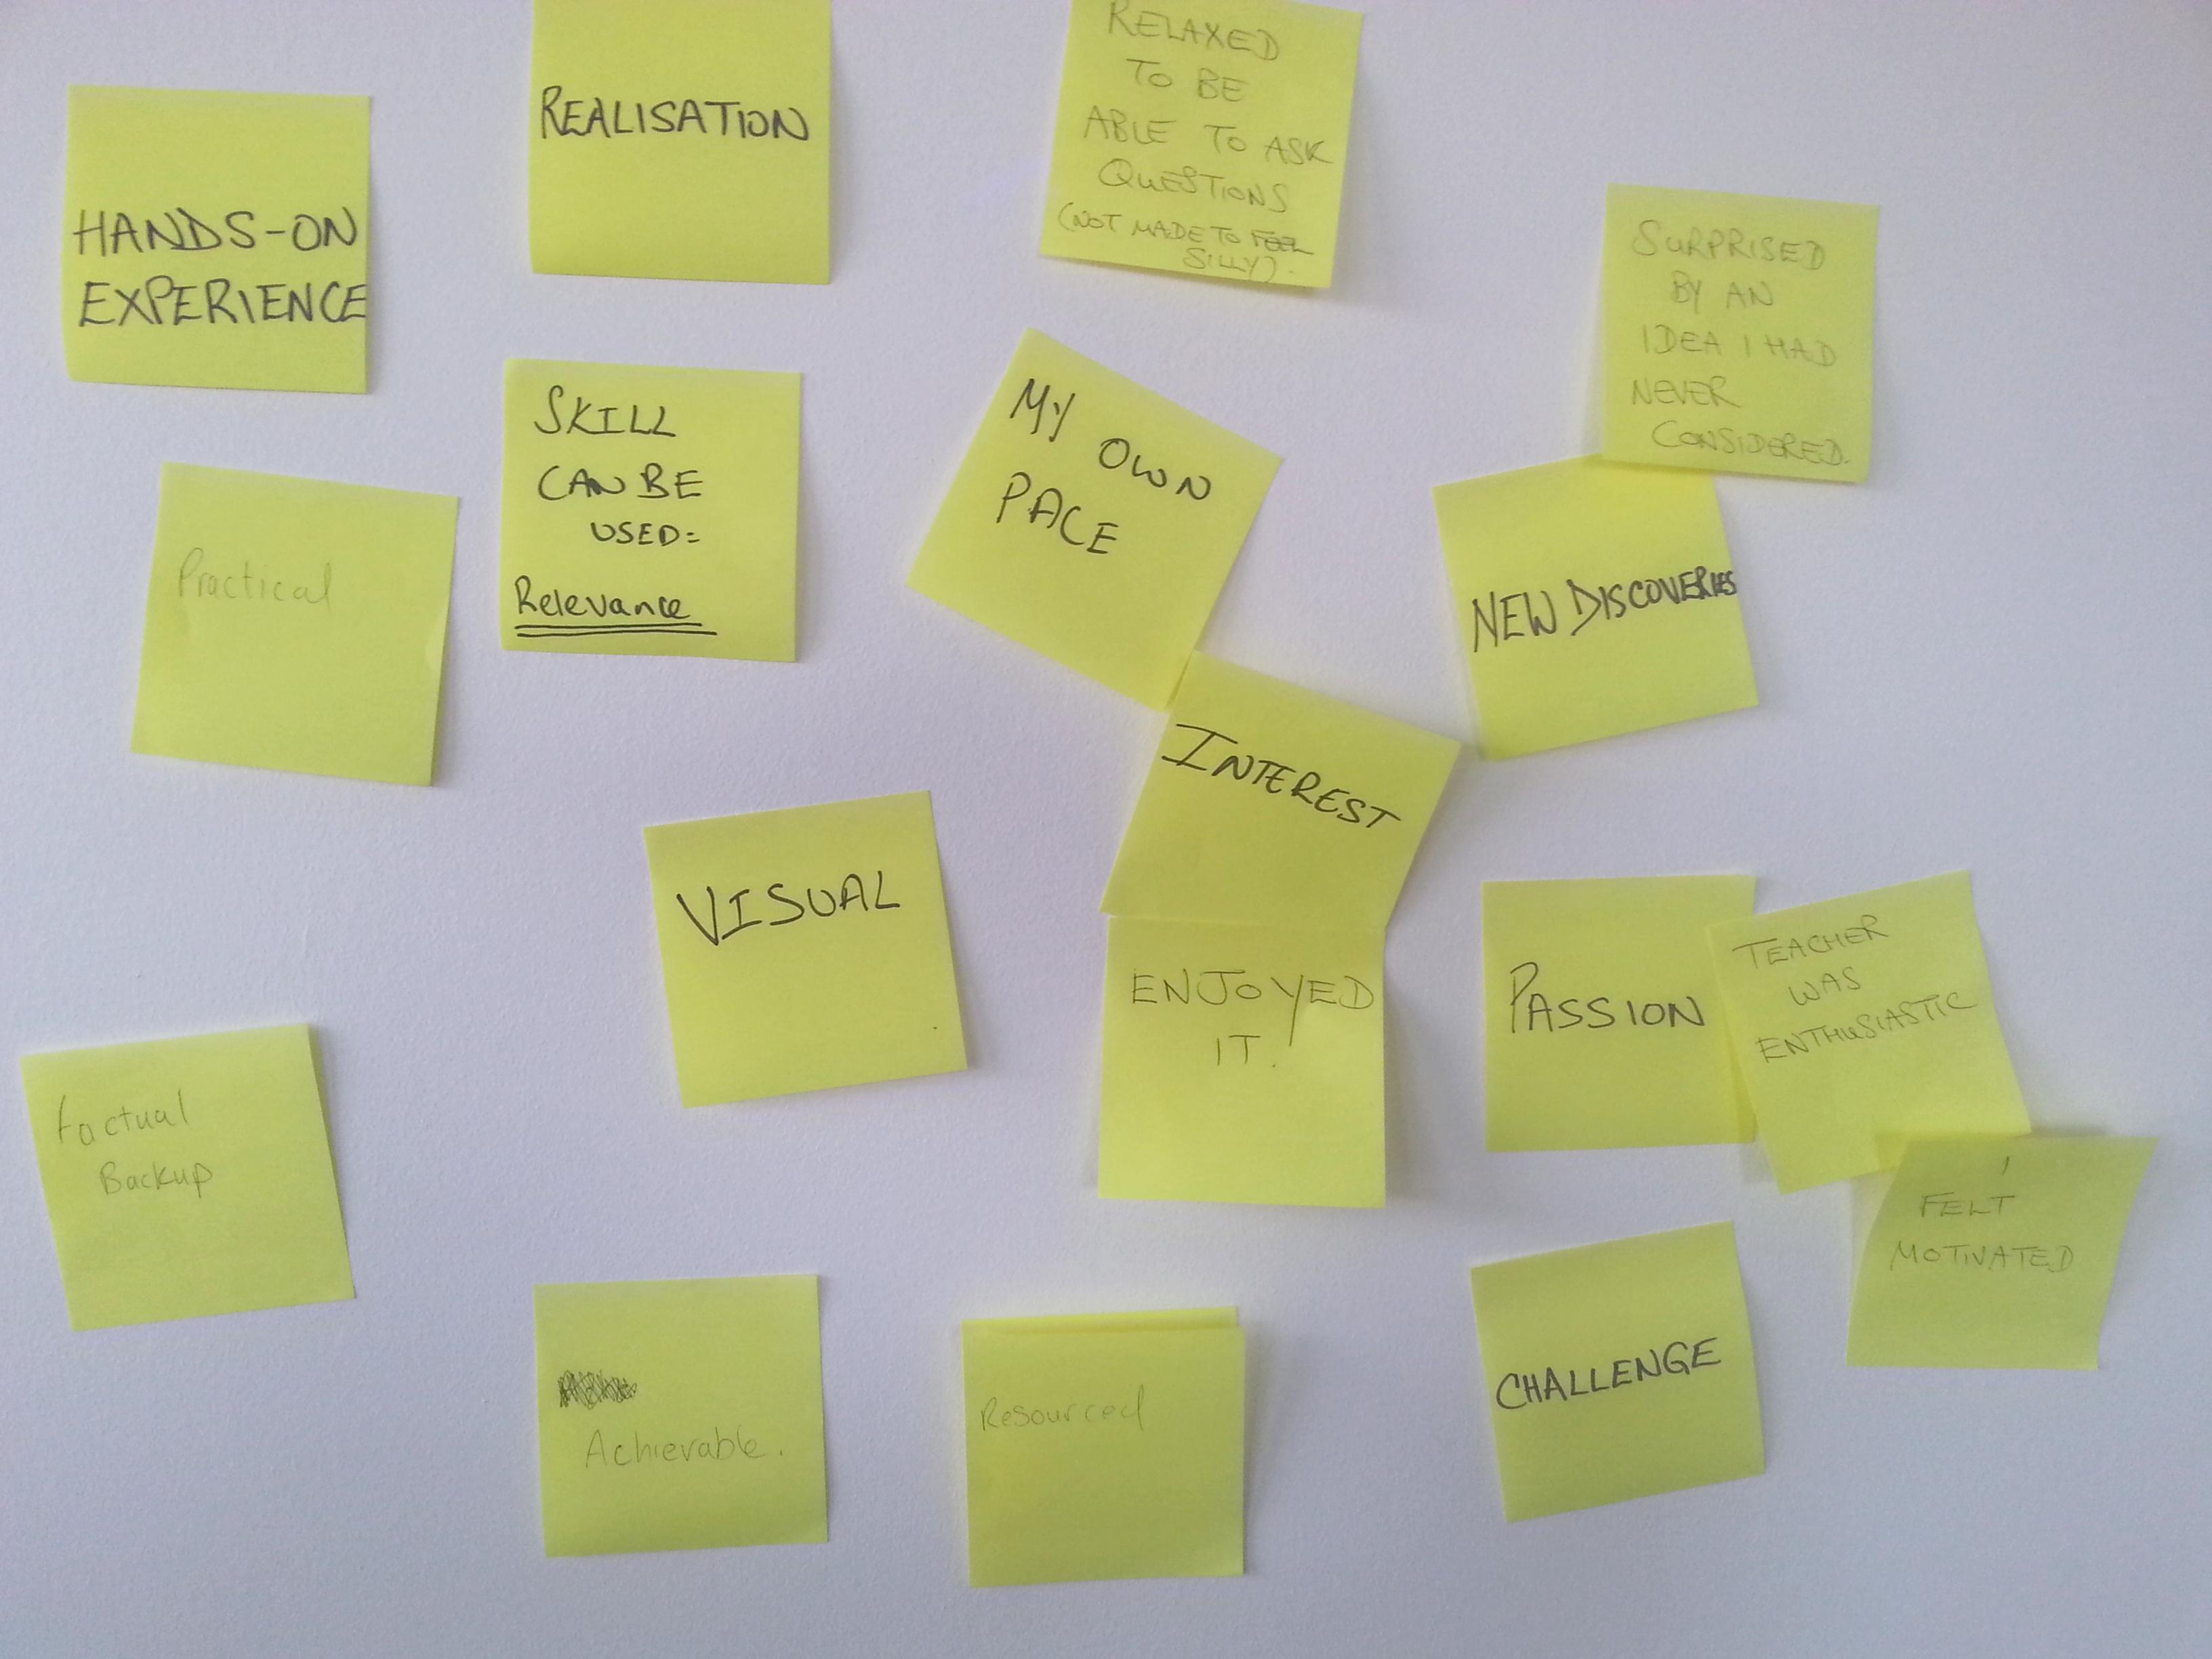 HANDS-ON
EXPERIENCE
REALISATION
RELAXED
TO BE
ABLE TO ASK
QUESTIONS
(NOT MADE TO FEEL
SILLY).
SURPRISED
BY AN
IDEA I HAD
NEVER
CONSIDERED.
Practical
SKILL
CAN BE
USED=
Relevance
MY OWN
PACE
NEW DISCOVERIES
INTEREST
VISUAL
ENJOYED
IT.
PASSION
TEACHER
WAS
ENTHUSIASTIC
I
FELT
MOTIVATED
factual
Backup
Achievable.
Resourced
CHALLENGE